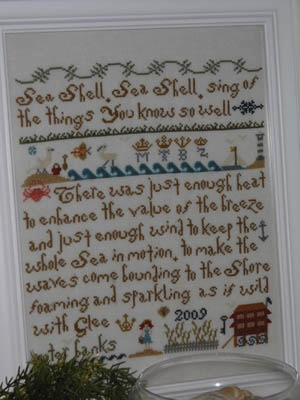 Sea Shell, Sea Shell, sing of
the things You know so well
M T B Z
There was just enough heat
to enhance the value of the breeze
and just enough wind to keep the
whole Sea in motion, to make the
waves come bounding to the Shore
foaming and sparkling as if wild
with Glee
2009
outer banks